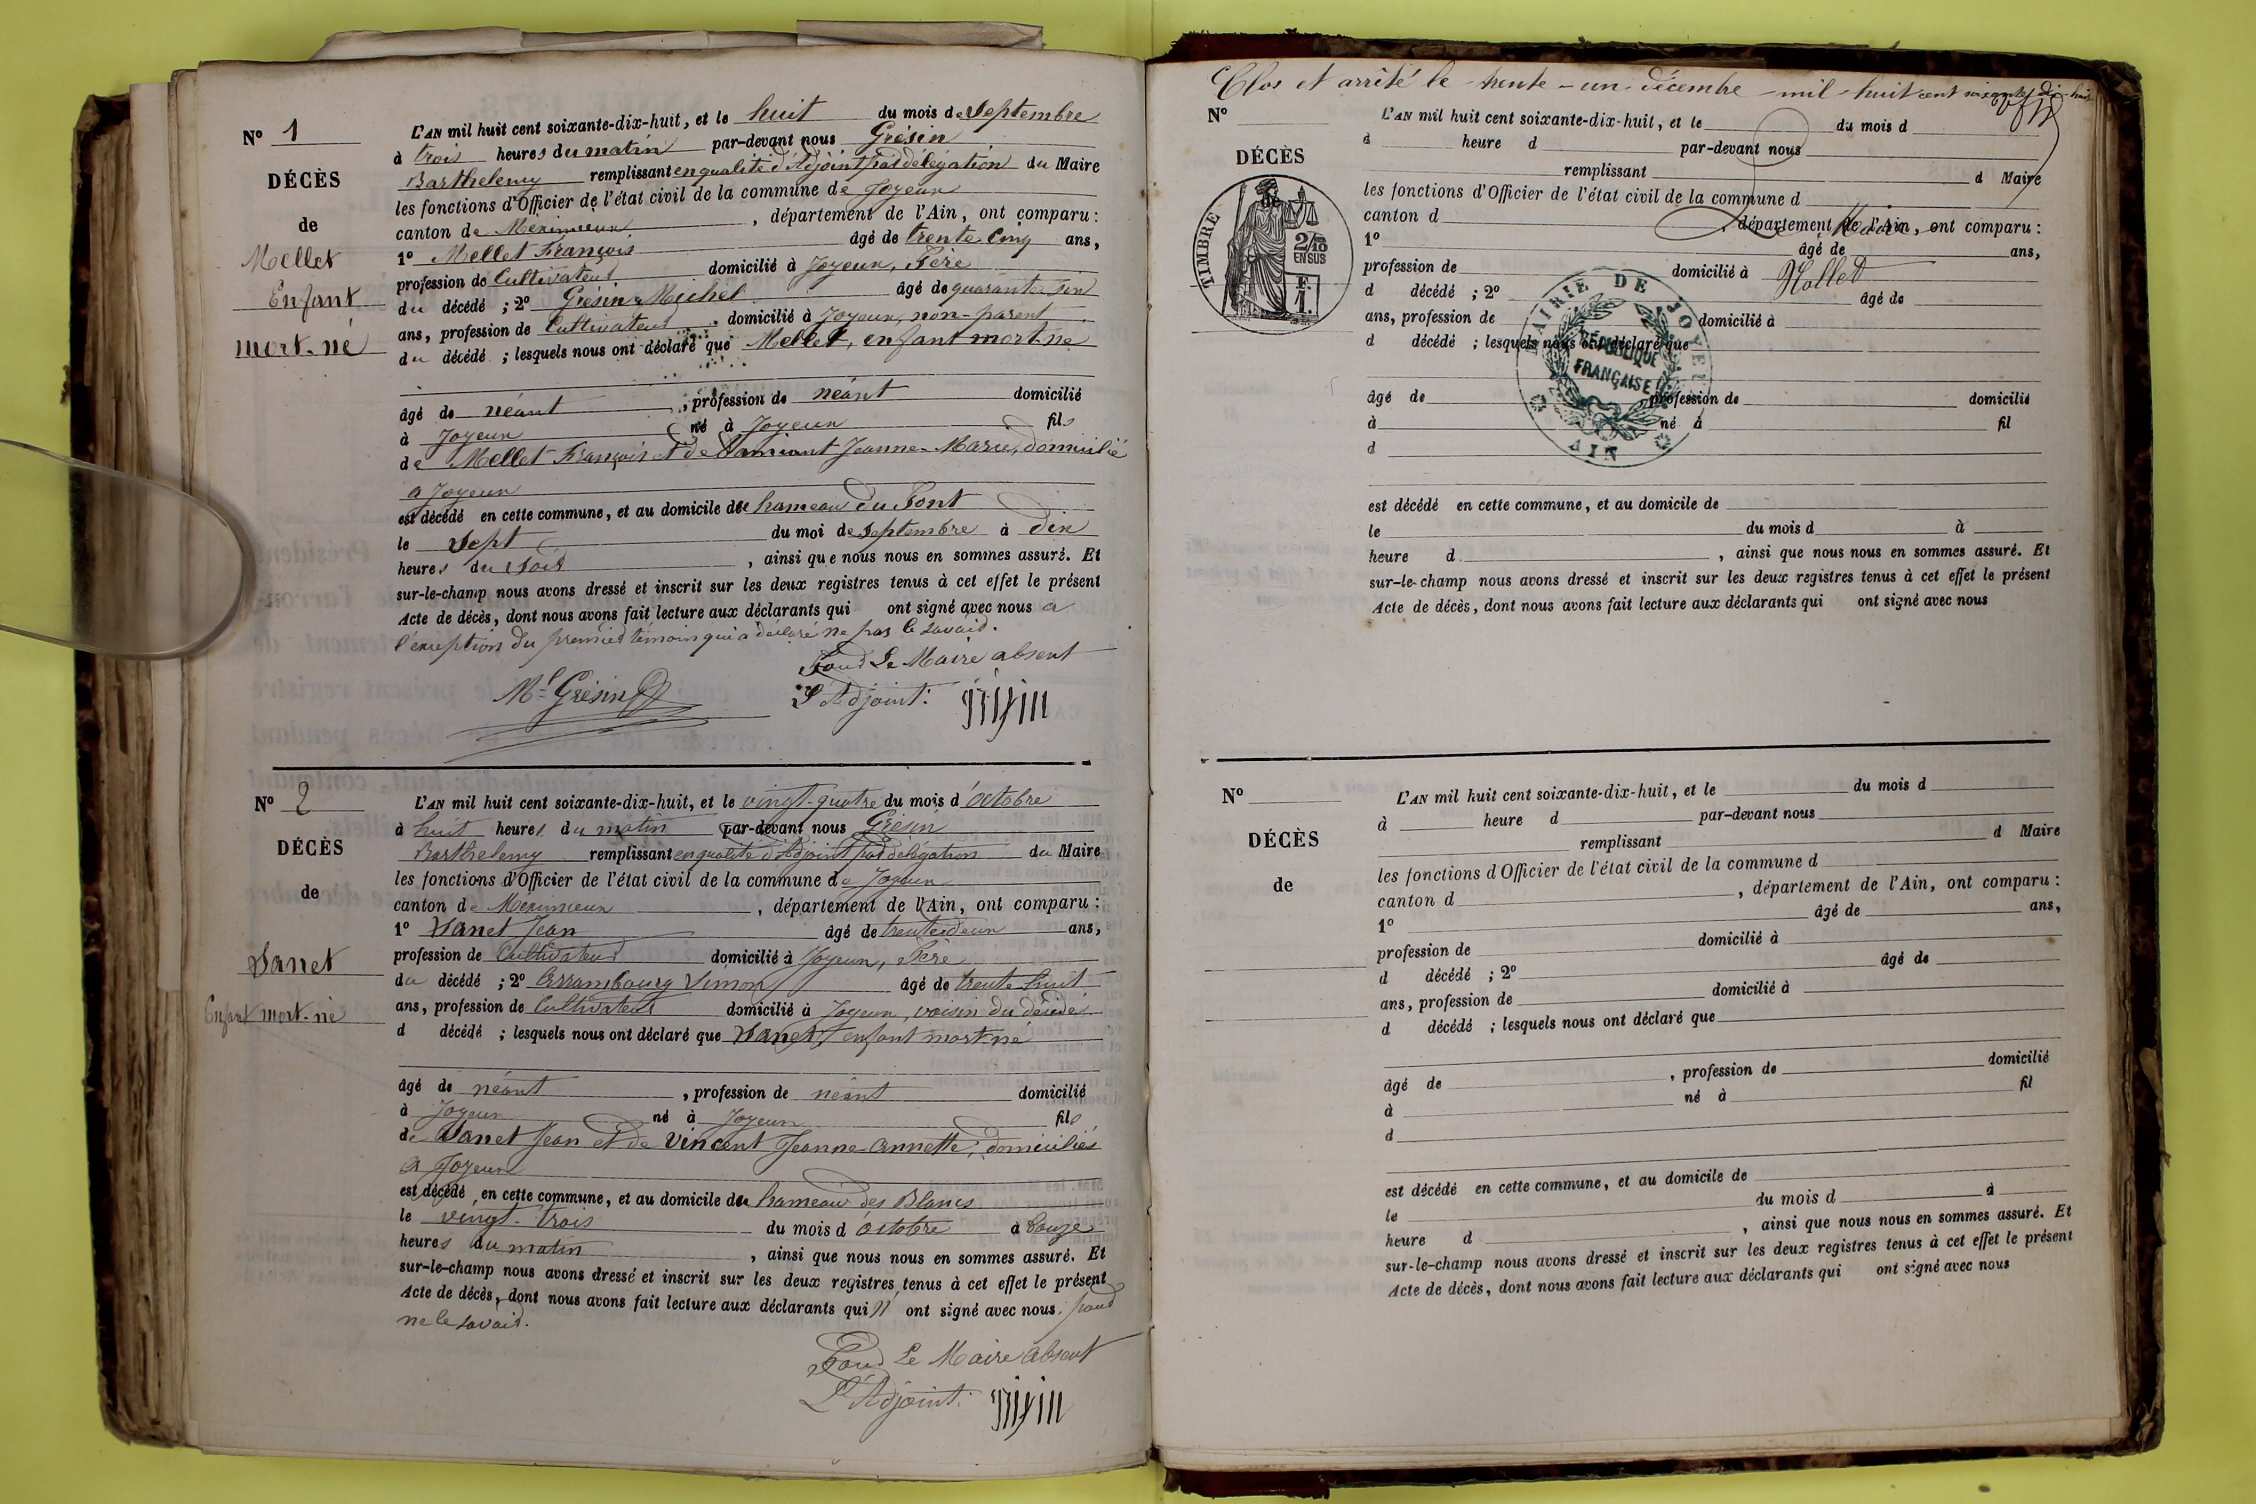 Nº 1
DÉCÈS
de
Mellet
Enfant
mort-né
L'AN mil huit cent soixante-dix-huit, et le huit du mois de Septembre
à trois heures du matin par-devant nous Grésin
Barthelemy remplissant en qualité d'Adjoint par délégation du Maire
les fonctions d'Officier de l'état civil de la commune de Joyeux
canton de Meximieux, département de l'Ain, ont comparu :
1º Mellet François âgé de trente cinq ans,
profession de Cultivateur domicilié à Joyeux, Père
du décédé ; 2º Grésin Michel âgé de quarante six
ans, profession de Cultivateur, domicilié à Joyeux, non-parent
du décédé ; lesquels nous ont déclaré que Mellet, enfant mort-né
âgé de néant, profession de néant domicilié
à Joyeux né à Joyeux fils
de Mellet François et de Jeanne-Marie, domicilié
a Joyeux
est décédé en cette commune, et au domicile du hameau du Pont
le Sept du moi de Septembre à dix
heures du soir, ainsi que nous nous en sommes assuré. Et
sur-le-champ nous avons dressé et inscrit sur les deux registres tenus à cet effet le présent
Acte de décès, dont nous avons fait lecture aux déclarants qui ont signé avec nous a
l'exeption du premier témoin qui a déclaré ne pas le savoir.
Pour Le Maire absent
Ml Grésin
L'Adjoint : grisin
Nº 2
DÉCÈS
de
Janet
Enfant mort-né
L'AN mil huit cent soixante-dix-huit, et le vingt-quatre du mois d'octobre
à huit heures du matin par-devant nous Grésin
Barthelemy remplissant en qualité d'Adjoint par délégation du Maire
les fonctions d'Officier de l'état civil de la commune de Joyeux
canton de Meximieux, département de l'Ain, ont comparu :
1º Janet Jean âgé de trente deux ans,
profession de Cultivateur domicilié à Joyeux, Père
du décédé ; 2º Arrambourg Simon âgé de trente huit
ans, profession de Cultivateur domicilié à Joyeux, voisin du décédé
d décédé ; lesquels nous ont déclaré que Janet, enfant mort-né
âgé de néant, profession de néant domicilié
à Joyeux né à Joyeux fils
de Janet Jean et de Vincent Jeanne-Annette, domiciliés
a Joyeux
est décédé en cette commune, et au domicile du hameau des Blancs
le vingt-trois du mois d'octobre à onze
heures du matin, ainsi que nous nous en sommes assuré. Et
sur-le-champ nous avons dressé et inscrit sur les deux registres tenus à cet effet le présent
Acte de décès, dont nous avons fait lecture aux déclarants qui n'ont signé avec nous, pour
ne le savoir.
Pour Le Maire absent
L'Adjoint : grisin
Clos et arrêté le trente-un décembre mil-huit cent soixante dix-huit
Nº
DÉCÈS
TIMBRE
2/10 EN SUS
F. 1.
L'AN mil huit cent soixante-dix-huit, et le du mois d
à heure d par-devant nous
remplissant d Maire
les fonctions d'Officier de l'état civil de la commune d
canton d, département de l'Ain, ont comparu :
Le Maire
1º âgé de ans,
profession de domicilié à
Hollet
d décédé ; 2º âgé de
ans, profession de domicilié à
d décédé ; lesquels nous ont déclaré que
MAIRIE DE JOYEUX
RÉPUBLIQUE
FRANÇAISE
AIN
âgé de, profession de domicilié
à né à fil
d
est décédé en cette commune, et au domicile de
le du mois d à
heure d, ainsi que nous nous en sommes assuré. Et
sur-le-champ nous avons dressé et inscrit sur les deux registres tenus à cet effet le présent
Acte de décès, dont nous avons fait lecture aux déclarants qui ont signé avec nous
Nº
DÉCÈS
de
L'AN mil huit cent soixante-dix-huit, et le du mois d
à heure d par-devant nous
remplissant d Maire
les fonctions d'Officier de l'état civil de la commune d
canton d, département de l'Ain, ont comparu :
1º âgé de ans,
profession de domicilié à
d décédé ; 2º âgé de
ans, profession de domicilié à
d décédé ; lesquels nous ont déclaré que
âgé de, profession de domicilié
à né à fil
d
est décédé en cette commune, et au domicile de
le du mois d à
heure d, ainsi que nous nous en sommes assuré. Et
sur-le-champ nous avons dressé et inscrit sur les deux registres tenus à cet effet le présent
Acte de décès, dont nous avons fait lecture aux déclarants qui ont signé avec nous